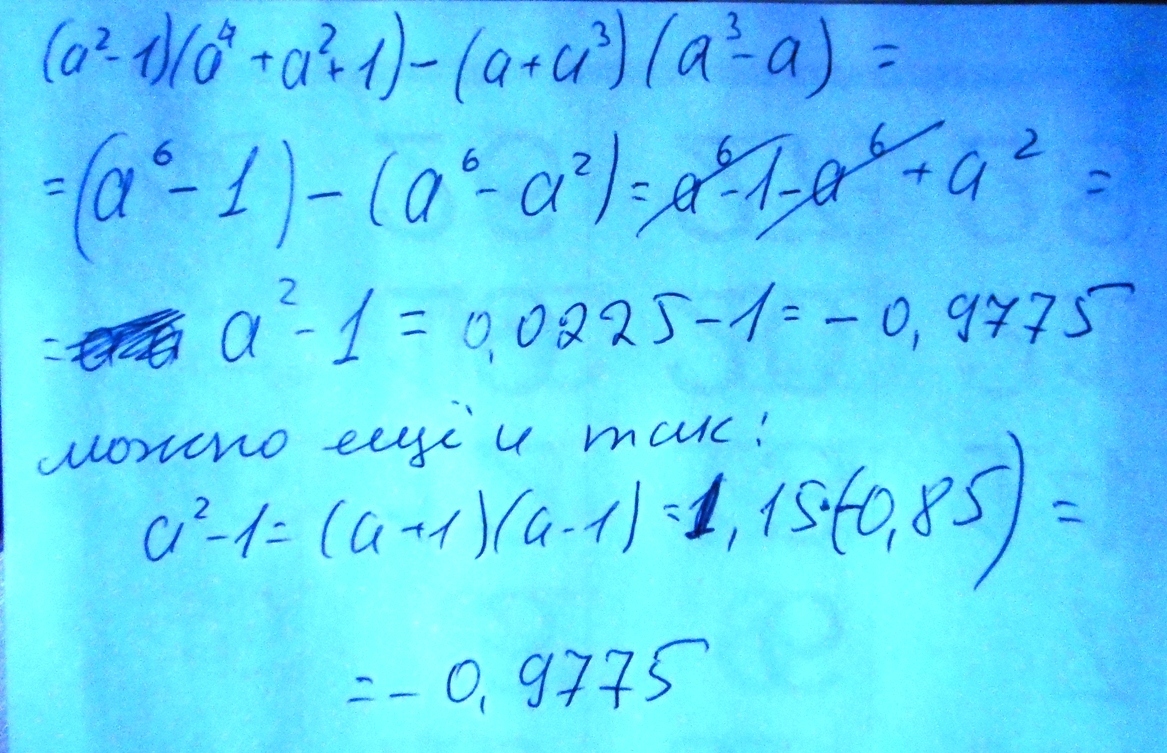 (a²-1)(a⁴+a²+1)-(a+a³)(a³-a)=
=(a⁶-1)-(a⁶-a²)=a⁶-1-a⁶+a²=
= a²-1=0,0225-1=-0,9775
можно ещё и так:
a²-1=(a+1)(a-1)=1,15·(-0,85)=
=-0,9775